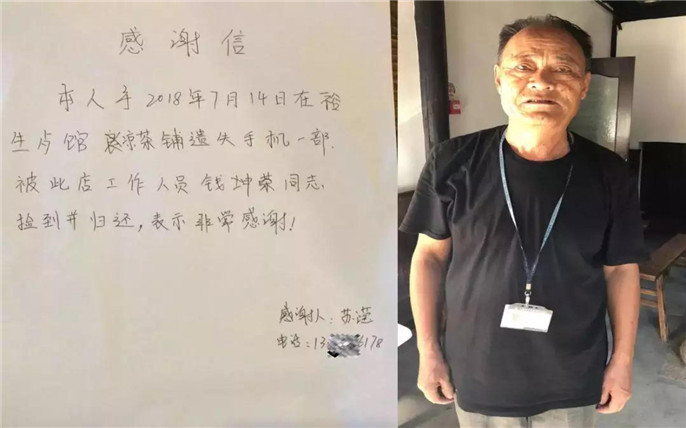 感谢信
本人于2018年7月14日在裕
生占馆 凉茶铺遗失手机一部.
被此店工作人员钱坤荣同志
捡到并归还,表示非常感谢!
感谢人:苏滢
电话:13 178